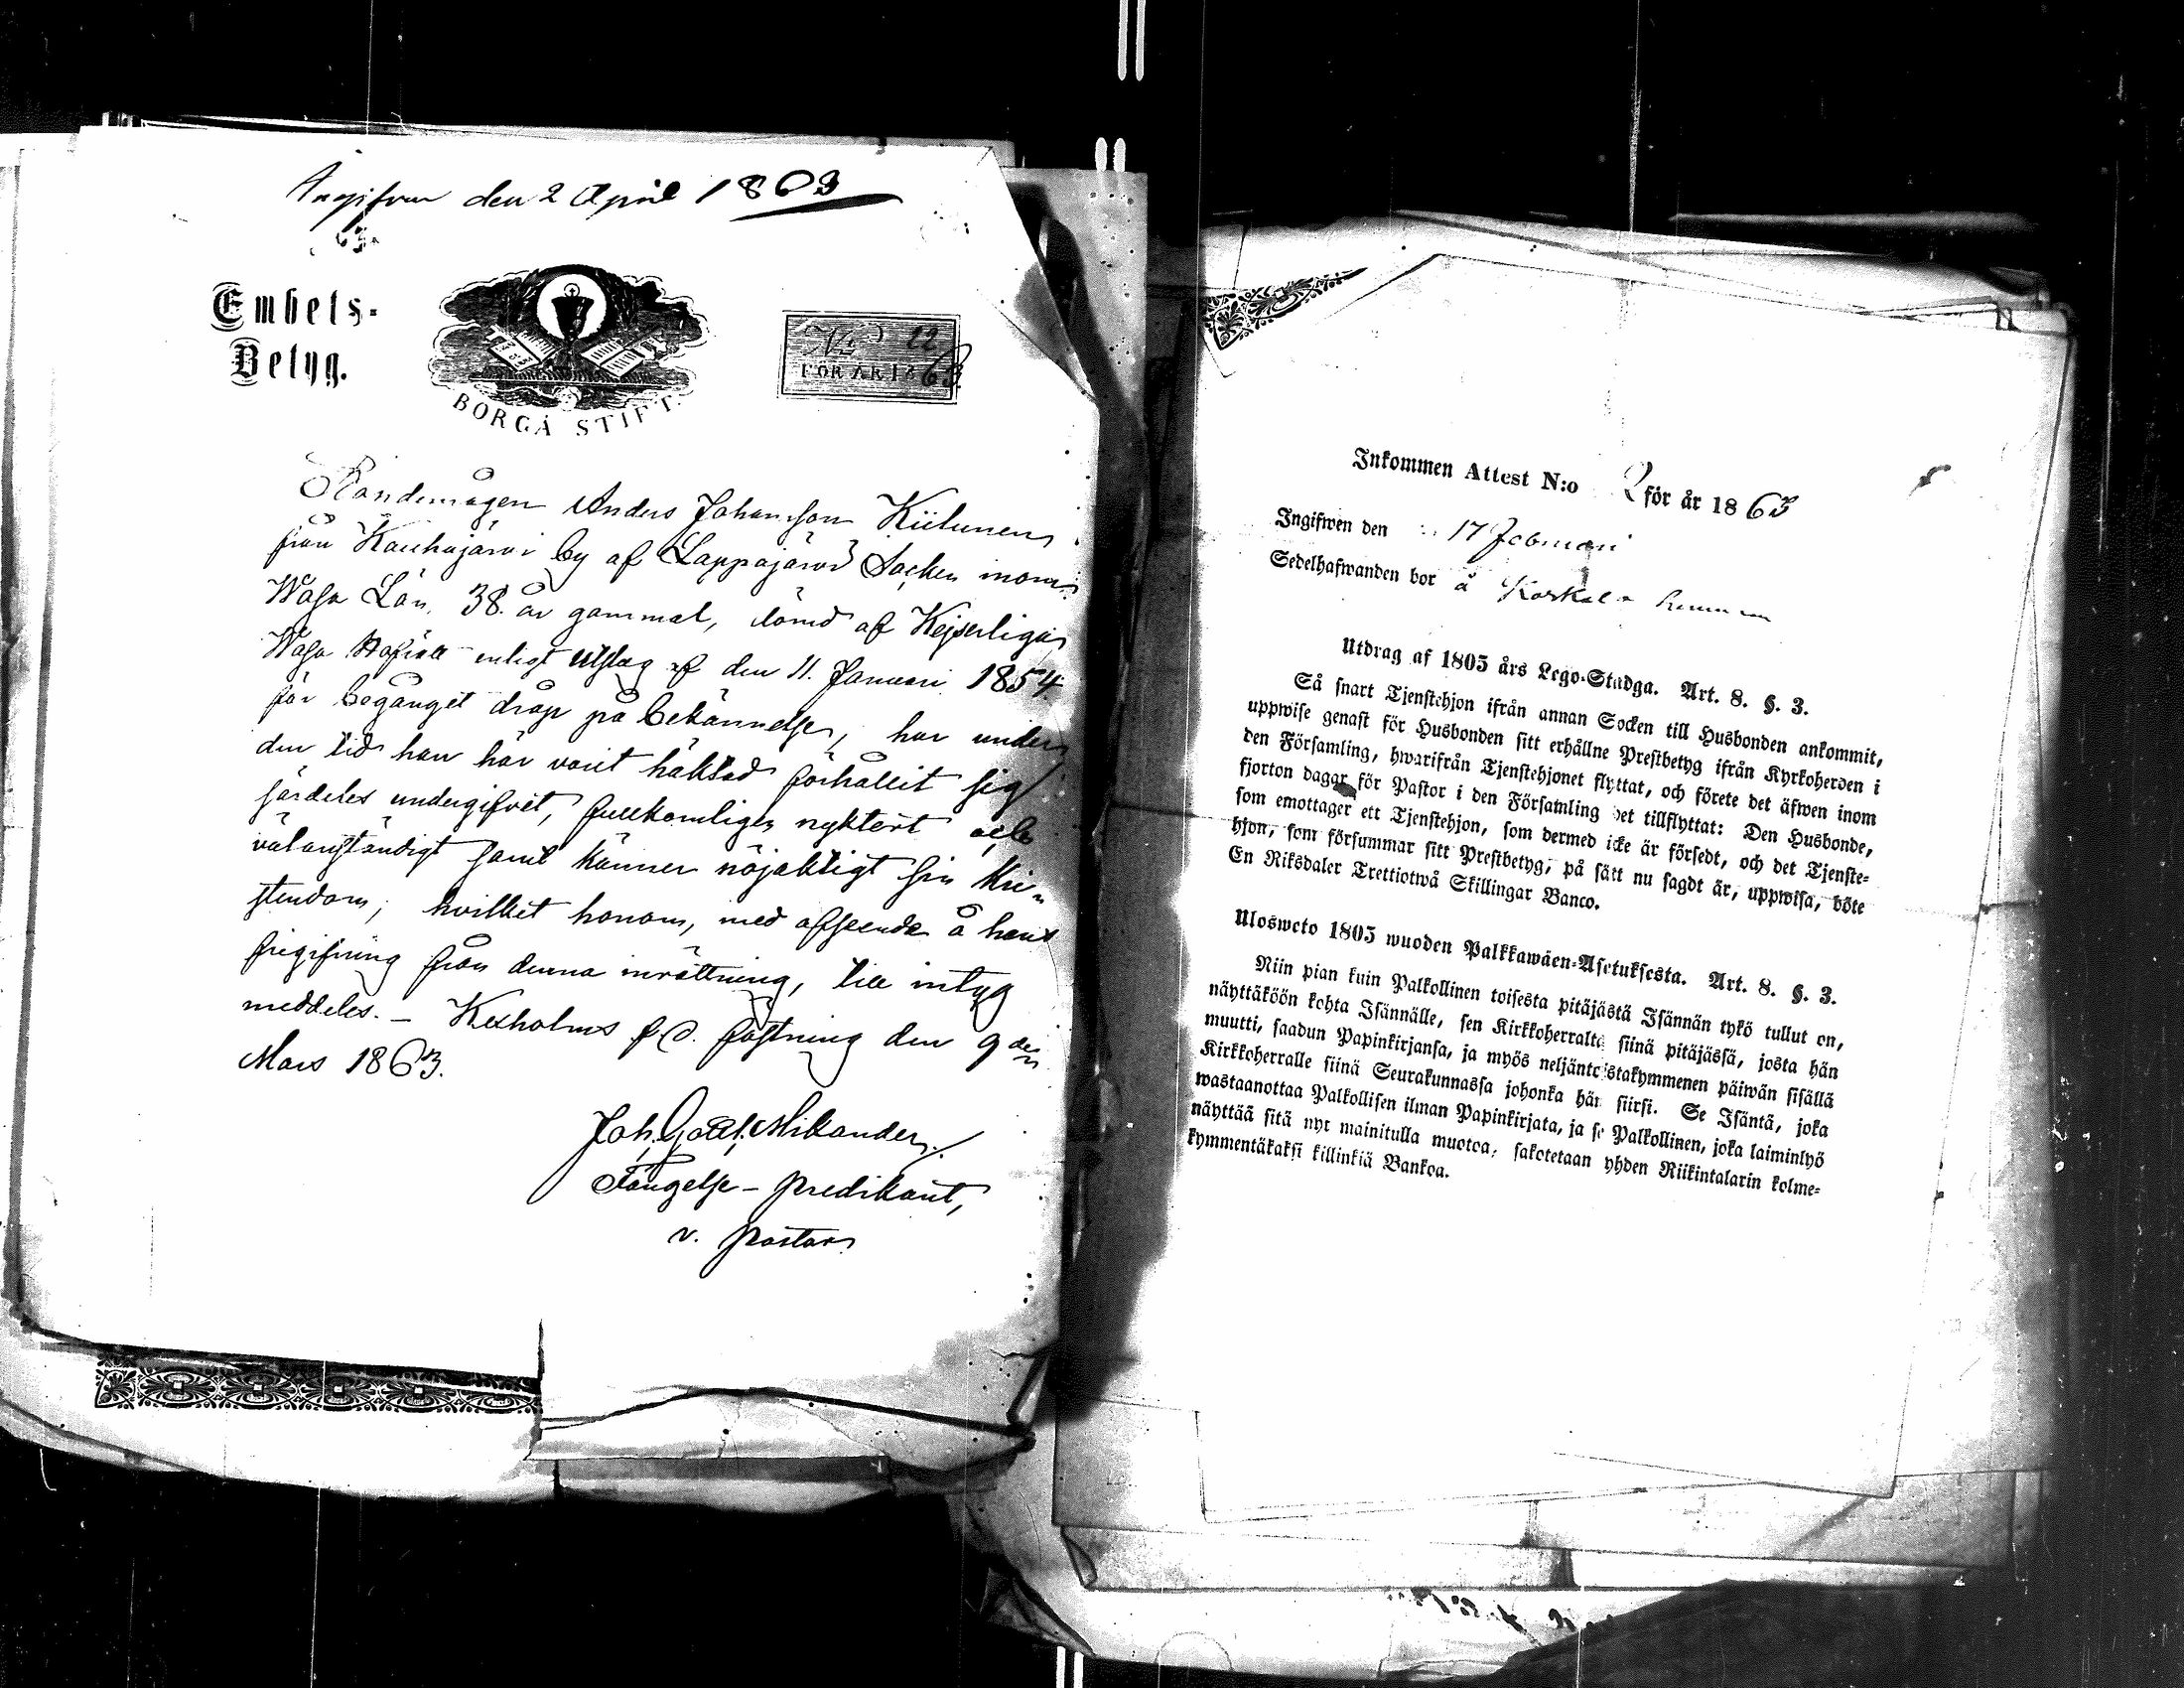 Ingifven den 2 April 1863
Embets-
Betyg.
BORGÅ STIFT.
No 22
FÖR ÅR 1863.
Bondemågen Anders Johansson Kiilunen
från Kauhajärvi by af Lappajärvi Socken inom
Wasa Län, 38 år gammal, dömd af Kejserliga
Wasa Hofrätt enligt utslag af den 11. Januari 1854
för begånget dråp på bekännelse, har under
den tid han här varit häktad förhållit sig
särdeles undergifvet, fullkomligen nyktert och
välanständigt samt känner nöjaktigt sin Kri-
stendom; hvilket honom, med afseende å hans
frigifning från denna inrättning, till intyg
meddeles. – Kexholms f.d. fästning den 9 den
Mars 1863.
Joh. Gottl. Mikander,
Fängelse-predikant,
v. pastor
Inkommen Attest N:o 2 för år 1863
Ingifwen den 17 Februari
Sedelhafwanden bor å
Utdrag af 1805 års Lego-Stadga. Art. 8. §. 3.
Så snart Tjenstehjon ifrån annan Socken till Husbonden ankommit,
uppwise genast för Husbonden sitt erhållne Prestbetyg ifrån Kyrkoherden i
den Församling, hwarifrån Tjenstehjonet flyttat, och förete det äfwen inom
fjorton dagar för Pastor i den Församling det tillflyttat: Den Husbonde,
som emottager ett Tjenstehjon, som dermed icke är försedt, och det Tjenste-
hjon, som försummar sitt Prestbetyg, på sätt nu sagdt är, uppwisa, böte
En Riksdaler Trettiotwå Skillingar Banco.
Ulosweto 1805 wuoden Palkkawäen-Asetuksesta. Art. 8. §. 3.
Niin pian kuin Palkollinen toisesta pitäjästä Isännän tykö tullut on,
näyttäköön kohta Isännälle, sen Kirkkoherralta siinä pitäjässä, josta hän
muutti, saadun Papinkirjansa, ja myös neljäntoistakymmenen päiwän sisällä
Kirkkoherralle siinä Seurakunnassa johonka hän siirsi. Se Isäntä, joka
wastaanottaa Palkollisen ilman Papinkirjata, ja se Palkollinen, joka laiminlyö
näyttää sitä nyt mainitulla muotoa, sakotetaan yhden Riikintalarin kolme-
kymmentäkaksi killinkiä Bankoa.